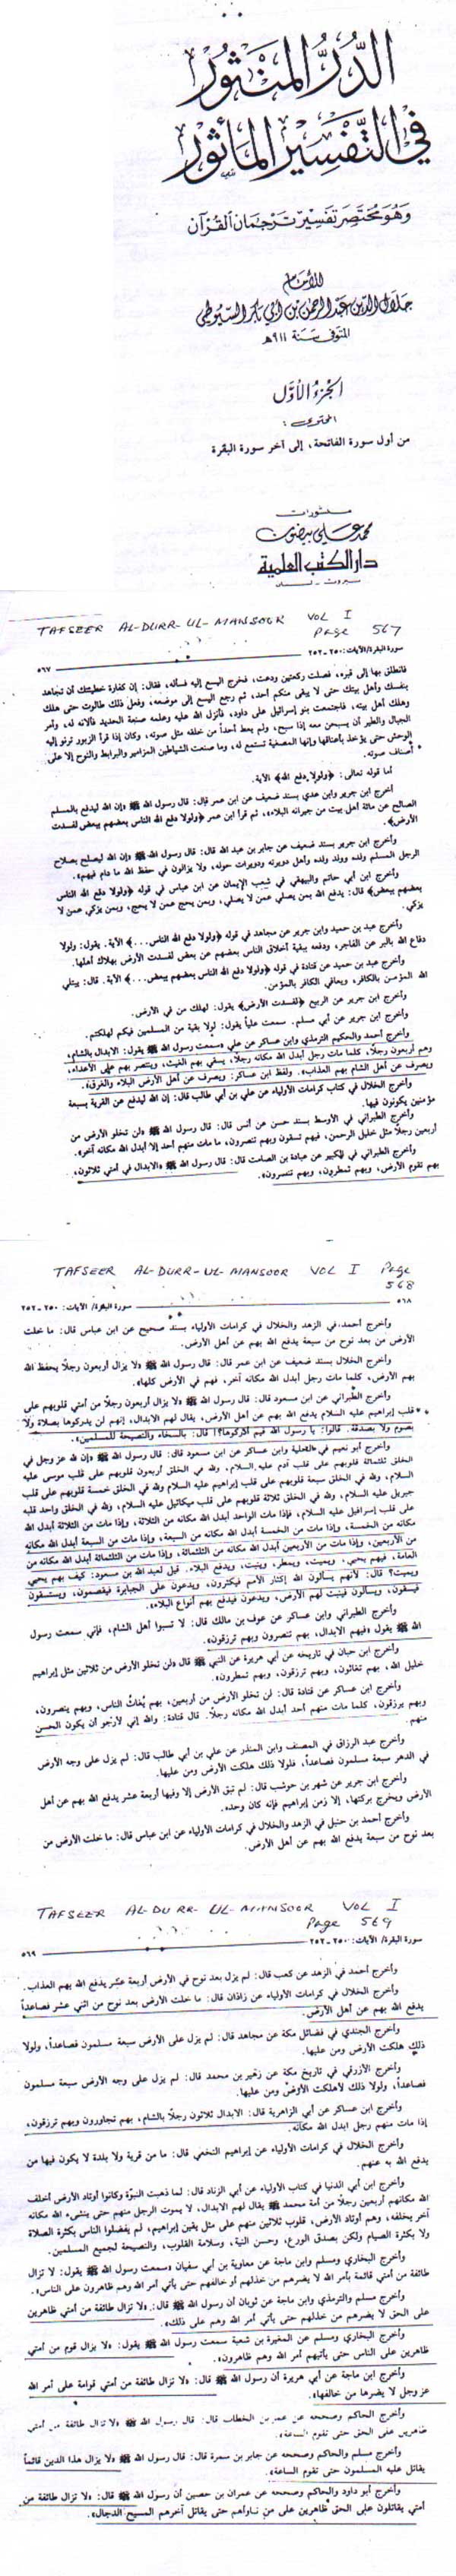 الدُّرُّ المَنثُور
في التَّفسِير المَأثور
وَهُوَ مُختَصَر تَفسِير تَرجُمَان القُرآن
للإمَام
جَلَال الدِّين عَبد الرحمن بن أبي بَكر السّيُوطي
المتوَفى سَنَة ٩١١ هـ
الجُزءُ الأوَّل
المحتوى :
من أول سورة الفاتحة، إلى آخر سورة البقرة
منشورات
محمد علي بيضون
دار الكتب العلمية
بيروت - لبنان
TAFSEER AL-DURR-UL-MANSOOR VOL I
Page 567
سورة البقرة/الآيات: ٢٥٠ـ٢٥٢
٥٦٧
فانطلق بها إلى قبره، فصلت ركعتين ودعت، فخرج اليسع إليه فسأله، فقال: إن كفارة خطيئتك أن تجاهد
بنفسك وأهل بيتك حتى لا يبقى منكم أحد، ثم رجع اليسع إلى موضعه، وفعل ذلك طالوت حتى هلك
وهلك أهل بيته، فاجتمعت بنو إسرائيل على داود، فأنزل الله عليه وعلمه صنعة الحديد فألانه له، وأمر
الجبال والطير أن يسبحن معه إذا سبح، ولم يعط أحداً من خلقه مثل صوته، وكان إذا قرأ الزبور ترنو إليه
الوحش حتى يؤخذ بأعناقها وإنها المصغية تستمع له، وما صنعت الشياطين المزامير والبرابط والنوح إلا على
أصناف صوته.
أما قوله تعالى: ﴿ولولا دفع الله﴾ الآية.
أخرج ابن جرير وابن عدي بسند ضعيف عن ابن عمر قال: قال رسول الله ﷺ «إن الله ليدفع بالمسلم
الصالح عن مائة أهل بيت من جيرانه البلاء، ثم قرأ ابن عمر ﴿ولولا دفع الله الناس بعضهم ببعض لفسدت
الأرض﴾.
وأخرج ابن جرير بسند ضعيف عن جابر بن عبد الله قال: قال رسول الله ﷺ «إن الله ليصلح بصلاح
الرجل المسلم ولده وولد ولده وأهل دويرته ودويرات حوله، ولا يزالون في حفظ الله ما دام فيهم».
وأخرج ابن أبي حاتم والبيهقي في شعب الإيمان عن ابن عباس في قوله ﴿ولولا دفع الله الناس
بعضهم ببعض﴾ قال: يدفع الله بمن يصلي عمن لا يصلي، وبمن يحج عمن لا يحج، وبمن يزكي عمن لا
يزكي.
وأخرج عبد بن حميد وابن جرير عن مجاهد في قوله ﴿ولولا دفع الله الناس...﴾ الآية. يقول: ولولا
دفاع الله بالبر عن الفاجر، ودفعه ببقية أخلاق الناس بعضهم عن بعض لفسدت الأرض بهلاك أهلها.
وأخرج عبد بن حميد عن قتادة في قوله ﴿ولولا دفع الله الناس بعضهم ببعض...﴾ الآية. قال: يبتلي
الله المؤمن بالكافر، ويعافي الكافر بالمؤمن.
وأخرج ابن جرير عن الربيع ﴿لفسدت الأرض﴾ يقول: لهلك من في الأرض.
وأخرج ابن جرير عن أبي مسلم. سمعت علياً يقول: لولا بقية من المسلمين فيكم لهلكتم.
وأخرج أحمد والحكيم الترمذي وابن عساكر عن علي «سمعت رسول الله ﷺ يقول: الابدال بالشام،
وهم أربعون رجلاً، كلما مات رجل أبدل الله مكانه رجلاً، يسقى بهم الغيث، وينتصر بهم على الأعداء،
ويصرف عن أهل الشام بهم العذاب». ولفظ ابن عساكر: ويصرف عن أهل الأرض البلاء والغرق».
وأخرج الخلال في كتاب كرامات الأولياء عن علي بن أبي طالب قال: إن الله ليدفع عن القرية بسبعة
مؤمنين يكونون فيها.
وأخرج الطبراني في الأوسط بسند حسن عن أنس قال: قال رسول الله ﷺ «لن تخلو الأرض من
أربعين رجلاً مثل خليل الرحمن، فبهم تسقون وبهم تنصرون، ما مات منهم أحد إلا أبدل الله مكانه آخر».
وأخرج الطبراني في الكبير عن عبادة بن الصامت قال: قال رسول الله ﷺ «الابدال في أمتي ثلاثون،
بهم تقوم الأرض، وبهم تمطرون، وبهم تنصرون».
TAFSEER AL-DURR-UL-MANSOOR VOL I Page
568
٥٦٨
سورة البقرة/ الآيات: ٢٥٠ـ٢٥٢
وأخرج أحمد في الزهد والخلال في كرامات الأولياء بسند صحيح عن ابن عباس قال: ما خلت
الأرض من بعد نوح من سبعة يدفع الله بهم عن أهل الأرض.
وأخرج الخلال بسند ضعيف عن ابن عمر قال: قال رسول الله ﷺ «لا يزال أربعون رجلاً يحفظ الله
بهم الأرض، كلما مات رجل أبدل الله مكانه آخر، فهم في الأرض كلها».
وأخرج الطبراني عن ابن مسعود قال: قال رسول الله ﷺ «لا يزال أربعون رجلاً من أمتي قلوبهم على
قلب إبراهيم عليه السلام يدفع الله بهم عن أهل الأرض، يقال لهم الابدال، إنهم لن يدركوها بصلاة ولا
بصوم ولا بصدقة. قالوا: يا رسول الله فيم أدركوها؟! قال: بالسخاء والنصيحة للمسلمين».
وأخرج أبو نعيم في الحلية وابن عساكر عن ابن مسعود قال: قال رسول الله ﷺ «إن لله عز وجل في
الخلق ثلثمائة قلوبهم على قلب آدم عليه السلام، ولله في الخلق أربعون قلوبهم على قلب موسى عليه
السلام، ولله في الخلق سبعة قلوبهم على قلب إبراهيم عليه السلام ولله في الخلق خمسة قلوبهم على قلب
جبريل عليه السلام، ولله في الخلق ثلاثة قلوبهم على قلب ميكائيل عليه السلام، ولله في الخلق واحد قلبه
على قلب إسرافيل عليه السلام، فإذا مات الواحد أبدل الله مكانه من الثلاثة، وإذا مات من الثلاثة أبدل الله
مكانه من الخمسة، وإذا مات من الخمسة أبدل الله مكانه من السبعة، وإذا مات من السبعة أبدل الله مكانه
من الأربعين، وإذا مات من الأربعين أبدل الله مكانه من الثلثمائة، وإذا مات من الثلثمائة أبدل الله مكانه من
العامة، فبهم يحيي، ويميت، ويمطر، وينبت، ويدفع البلاء. قيل لعبد الله بن مسعود: كيف بهم يحيي
ويميت؟ قال: لأنهم يسألون الله إكثار الأمم فيكثرون، ويدعون على الجبابرة فيقصمون، ويستسقون
فيسقون، ويسألون فينبت لهم الأرض، ويدعون فيدفع بهم أنواع البلاء».
وأخرج الطبراني وابن عساكر عن عوف بن مالك قال: لا تسبوا أهل الشام، فإني سمعت رسول
الله ﷺ يقول «فيهم الابدال، بهم تنصرون وبهم ترزقون».
وأخرج ابن حبان في تاريخه عن أبي هريرة عن النبي ﷺ قال «لن تخلو الأرض من ثلاثين مثل إبراهيم
خليل الله، بهم تغاثون، وبهم ترزقون، وبهم تمطرون».
وأخرج ابن عساكر عن قتادة قال: لن تخلو الأرض من أربعين، بهم يُغاث الناس، وبهم ينصرون،
وبهم يرزقون، كلما مات منهم أحد أبدل الله مكانه رجلاً. قال قتادة: والله إني لأرجو أن يكون الحسن
منهم.
وأخرج عبد الرزاق في المصنف وابن المنذر عن علي بن أبي طالب قال: لم يزل على وجه الأرض
في الدهر سبعة مسلمون فصاعداً، فلولا ذلك هلكت الأرض ومن عليها.
وأخرج ابن جرير عن شهر بن حوشب قال: لم تبق الأرض إلا وفيها أربعة عشر يدفع الله بهم عن أهل
الأرض ويخرج بركتها، إلا زمن إبراهيم فإنه كان وحده.
وأخرج أحمد بن حنبل في الزهد والخلال في كرامات الأولياء عن ابن عباس قال: ما خلت الأرض من
بعد نوح من سبعة يدفع الله بهم عن أهل الأرض.
TAFSEER AL-DURR-UL-MANSOOR VOL I
Page 569
سورة البقرة/ الآيات: ٢٥٠ـ٢٥٢
٥٦٩
وأخرج أحمد في الزهد عن كعب قال: لم يزل بعد نوح في الأرض أربعة عشر يدفع الله بهم العذاب.
وأخرج الخلال في كرامات الأولياء عن زاذان قال: ما خلت الأرض بعد نوح من اثني عشر فصاعداً
يدفع الله بهم عن أهل الأرض.
وأخرج الجندي في فضائل مكة عن مجاهد قال: لم يزل على الأرض سبعة مسلمون فصاعداً، ولولا
ذلك هلكت الأرض ومن عليها.
وأخرج الأزرقي في تاريخ مكة عن زهير بن محمد قال: لم يزل على وجه الأرض سبعة مسلمون
فصاعداً، ولولا ذلك لأهلكت الأرض ومن عليها.
وأخرج ابن عساكر عن أبي الزاهرية قال: الابدال ثلاثون رجلاً بالشام، بهم تجاورون وبهم ترزقون،
إذا مات منهم رجل ابدل الله مكانه.
وأخرج الخلال في كرامات الأولياء عن إبراهيم النخعي قال: ما من قرية ولا بلدة لا يكون فيها من
يدفع الله به عنهم.
وأخرج ابن أبي الدنيا في كتاب الأولياء عن أبي الزناد قال: لما ذهبت النبوّة وكانوا أوتاد الأرض أخلف
الله مكانهم أربعين رجلاً من أمة محمد ﷺ يقال لهم الابدال، لا يموت الرجل منهم حتى ينشىء الله مكانه
آخر يخلفه، وهم أوتاد الأرض، قلوب ثلاثين منهم على مثل يقين إبراهيم، لم يفضلوا الناس بكثرة الصلاة
ولا بكثرة الصيام ولكن بصدق الورع، وحسن النية، وسلامة القلوب، والنصيحة لجميع المسلمين.
وأخرج البخاري ومسلم وابن ماجة عن معاوية بن أبي سفيان «سمعت رسول الله ﷺ يقول: لا تزال
طائفة من أمتي قائمة بأمر الله لا يضرهم من خذلهم أو خالفهم حتى يأتي أمر الله وهم ظاهرون على الناس».
وأخرج مسلم والترمذي وابن ماجة عن ثوبان أن رسول الله ﷺ قال: «لا تزال طائفة من أمتي ظاهرين
على الحق لا يضرهم من خذلهم حتى يأتي أمر الله وهم على ذلك».
وأخرج البخاري ومسلم عن المغيرة بن شعبة سمعت رسول الله ﷺ يقول: «لا يزال قوم من أمتي
ظاهرين على الناس حتى يأتيهم أمر الله وهم ظاهرون».
وأخرج ابن ماجة عن أبي هريرة أن رسول الله ﷺ قال: «لا تزال طائفة من أمتي قوامة على أمر الله
عز وجل لا يضرها من خالفها».
وأخرج الحاكم وصححه عن عمر بن الخطاب قال: قال رسول الله ﷺ «لا تزال طائفة من أمتي
ظاهرين على الحق حتى تقوم الساعة».
وأخرج مسلم والحاكم وصححه عن جابر بن سمرة قال: قال رسول الله ﷺ «لا يزال هذا الدين قائماً
يقاتل عليه المسلمون حتى تقوم الساعة».
وأخرج أبو داود والحاكم وصححه عن عمران بن حصين أن رسول الله ﷺ قال: «لا تزال طائفة من
أمتي يقاتلون على الحق ظاهرين على من ناوأهم حتى يقاتل آخرهم المسيح الدجال».